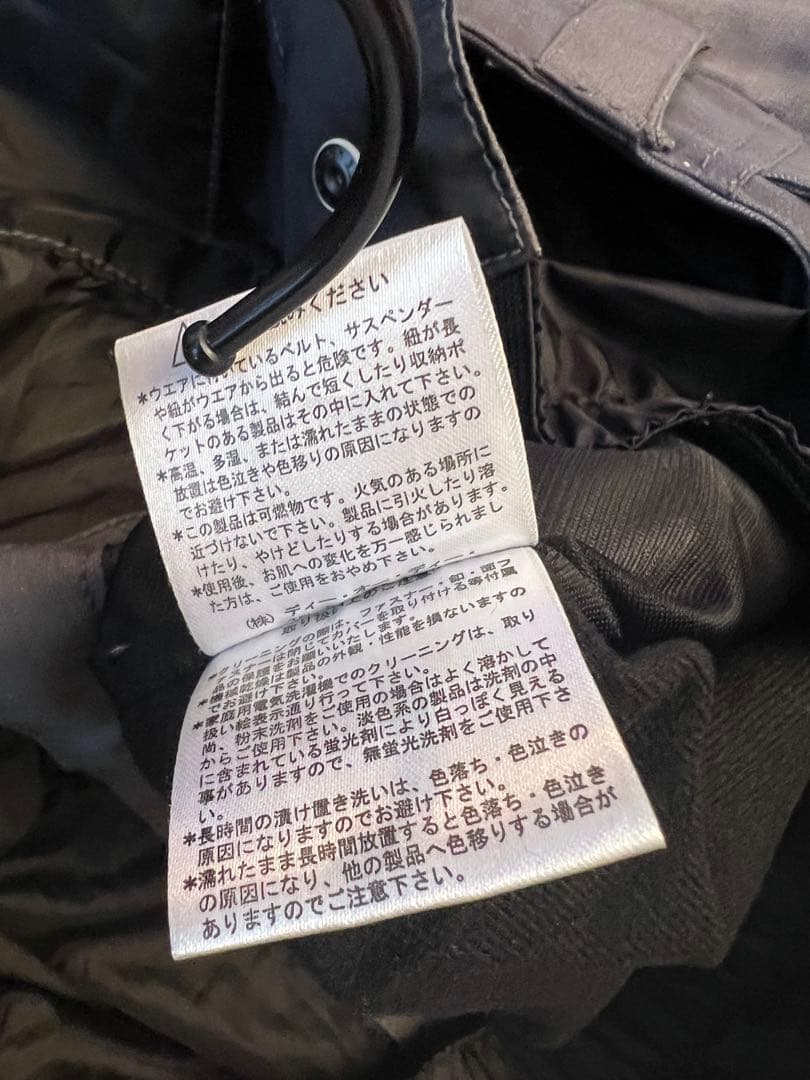 みください
*ウエアに いているベルト、サスペンダー
や紐がウエアから出ると危険です。紐が長
く下がる場合は、結んで短くしたり収納ポ
ケットのある製品はその中に入れて下さい。
*高温、多湿、または濡れたままの状態での
放置は色泣きや色移りの原因になりますの
でお避け下さい。
*この製品は可燃物です。火気のある場所に
近づけないで下さい。製品に引火したり溶
けたり、やけどしたりする場合があります。
*使用後、お肌への変化を万一感じられまし
た方は、ご使用をおやめ下さい。
(株) ディー・オー・ディー・
取り扱い上のご注意
リーニングの際は、ファスナー・釦・面フ
は閉じてカバーを取り付ける等付属
をお願いいたします。
製品の外観・性能を損ないますの
下さい。
電気洗濯機でのクリーニングは、取り
表示通り行って下さい。
尚、粉末洗剤をご使用の場合はよく溶かして
からご使用下さい。淡色系の製品は洗剤の中
に含まれている蛍光剤により白っぽく見える
事がありますので、無蛍光洗剤をご使用下さ
い。
*長時間の漬け置き洗いは、色落ち・色泣きの
原因になりますのでお避け下さい。
*濡れたまま長時間放置すると色落ち・色泣き
の原因になり、他の製品へ色移りする場合が
ありますのでご注意下さい。